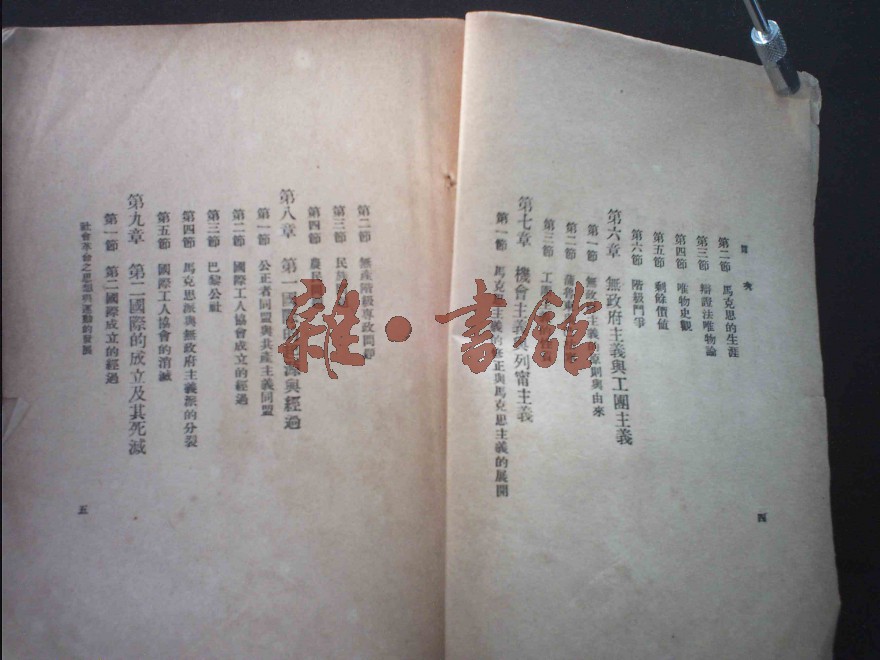 目次
第二節 馬克思的生涯
第三節 辯證法唯物論
第四節 唯物史觀
第五節 剩餘價值
第六節 階級鬥爭
第六章 無政府主義與工團主義
第一節 無政府主義的原則與由來
第二節
第三節 工
第七章 機會主義與列甯主義
第一節 馬克思主義的修正與馬克思主義的展開
四
第二節 無產階級專政問題
第三節 民族
第四節 農民
第八章 第一國際的與經過
第一節 公正者同盟與共產主義同盟
第二節 國際工人協會成立的經過
第三節 巴黎公社
第四節 馬克思派與無政府主義派的分裂
第五節 國際工人協會的消滅
第九章 第二國際的成立及其死滅
第一節 第二國際成立的經過
社會革命之思想與運動的發展
五
雜·書館